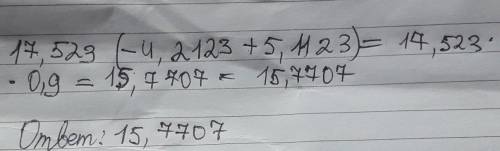 17,523 (-4,2123 + 5,1123) = 17,523·
· 0,9 = 15,7707 = 15,7707
Ответ: 15,7707